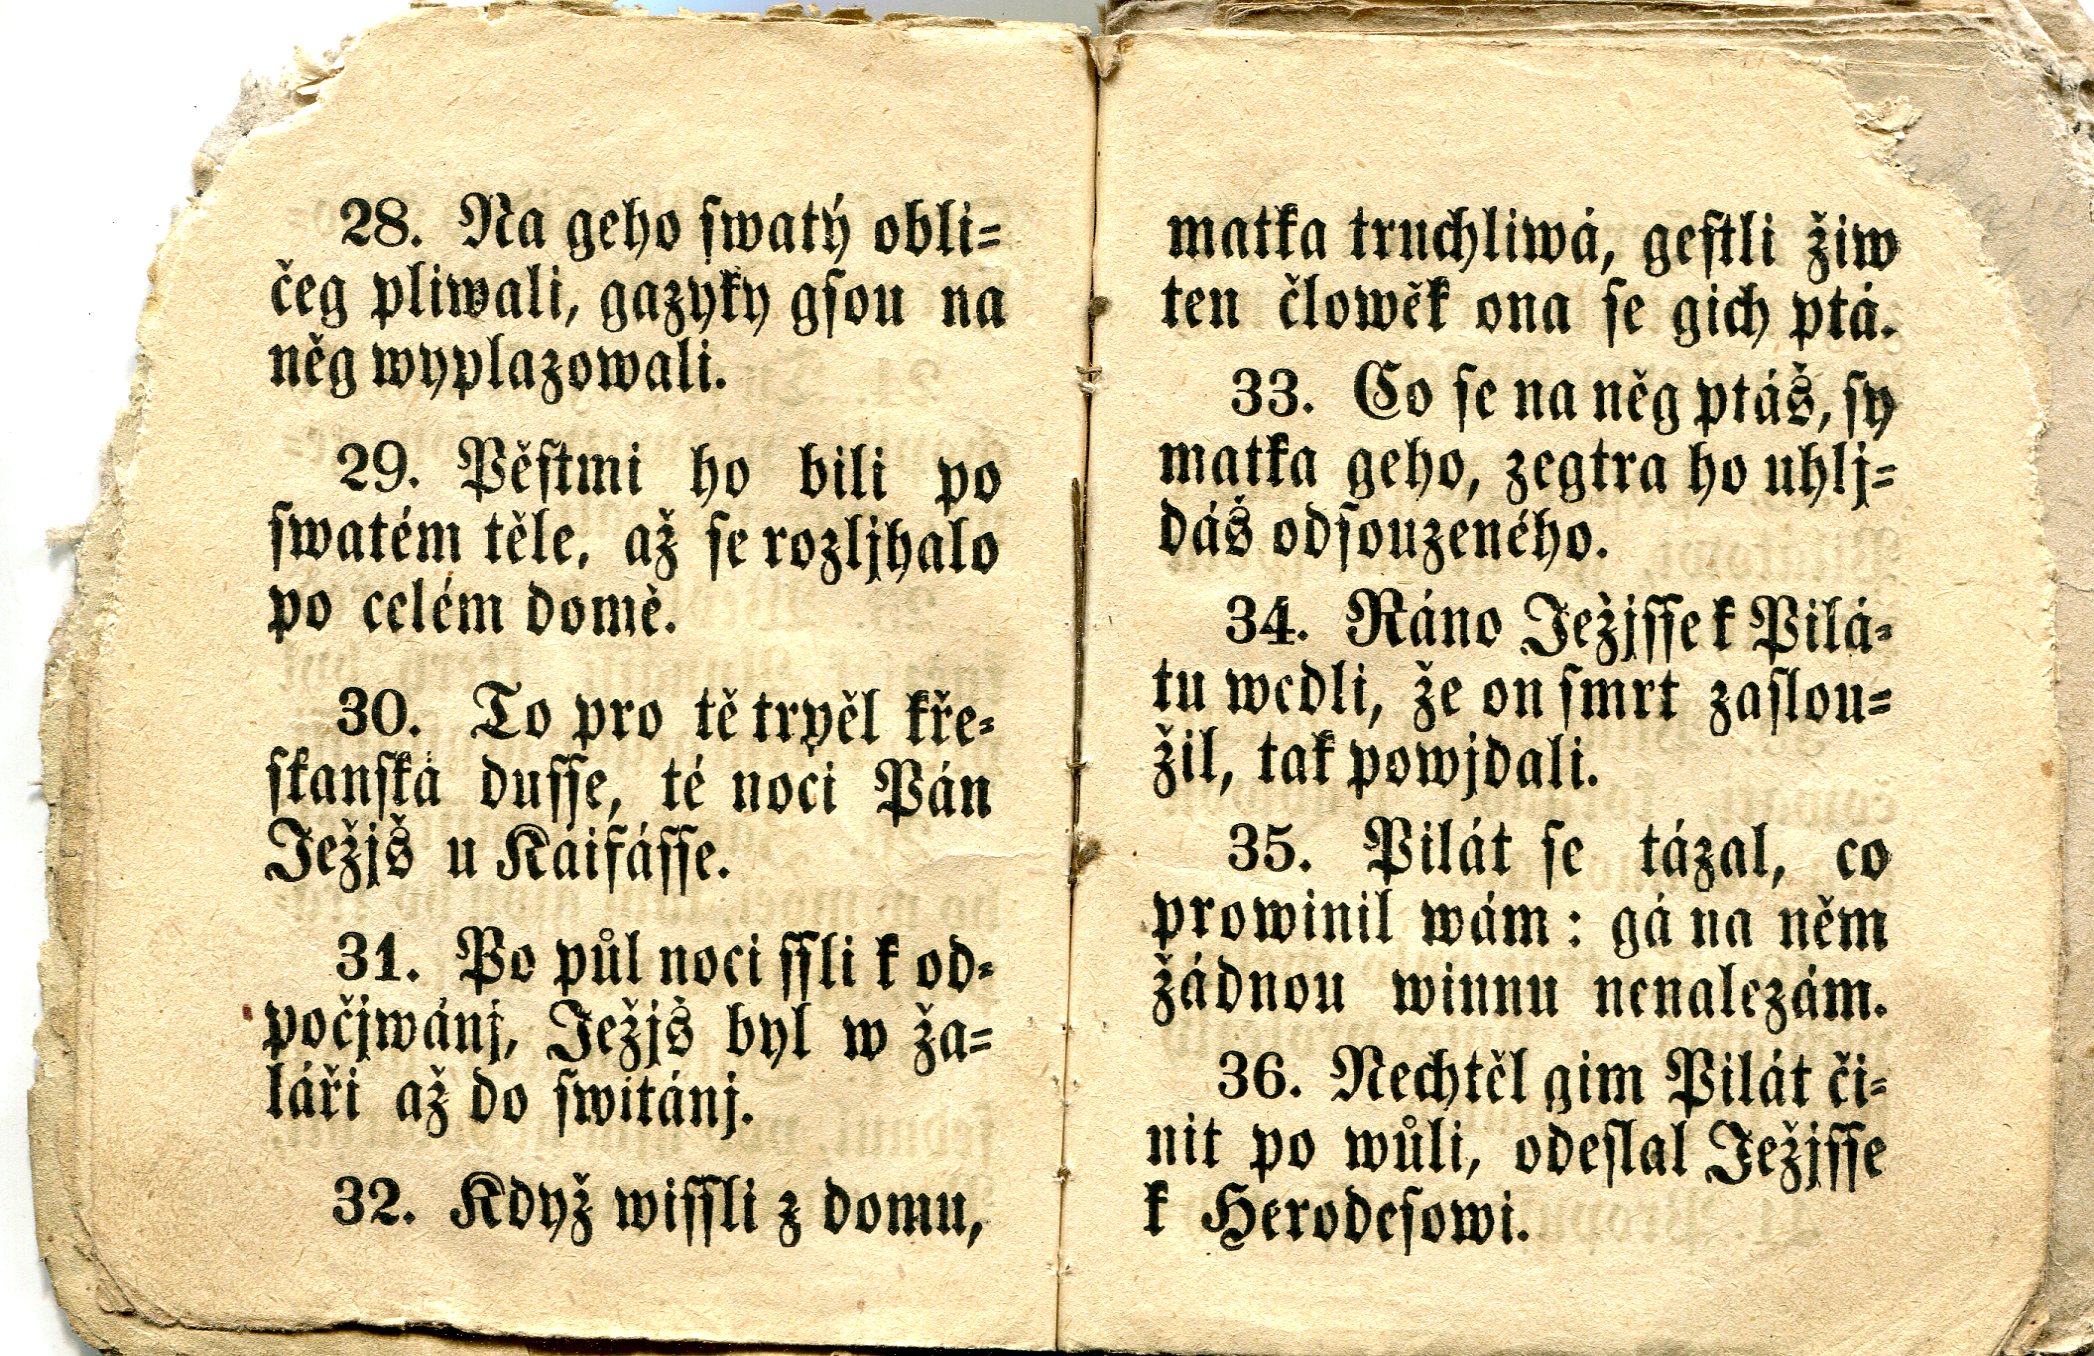 28. Na geho swatý obli=
čeg pliwali, gazyky gsou na
něg wyplazowali.
29. Pěstmi ho bili po
swatém těle, až se rozljhalo
po celém domě.
30. To pro tě trpěl kře=
skanská dusse, té noci Pán
Ježjš u Kaifásse.
31. Po půl noci ssli k od=
počjwánj, Ježjš byl w ža=
láři až do switánj.
32. Když wissli z domu,
matka truchliwá, gestli žiw
ten člowěk ona se gich ptá.
33. Co se na něg ptáš, sy
matka geho, zegtra ho uhlj=
dáš odsouzeného.
34. Ráno Ježjsse k Pilá=
tu wedli, že on smrt zaslou=
žil, tak powjdali.
35. Pilát se tázal, co
prowinil wám: gá na něm
žádnou winnu nenalezám.
36. Nechtěl gim Pilát či=
nit po wůli, odeslal Ježjsse
k Herodesowi.